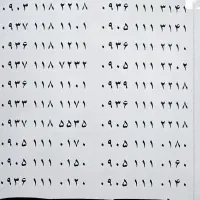 ۰۹۰۳ ۱۱۸ ۲۲۱۸ ۰۹۳۶ ۱۱۱ ۳۱۴۱
۰۹۳۷ ۱۱۸ ۱۱۰۱ ۰۹۰۵ ۱۱۱ ۳۱۴۱
۰۹۳۶ ۱۱۸ ۱۲۱۱ ۰۹۳۶ ۱۱۱ ۲۲۱۰
۰۹۳۷ ۱۱۸ ۷۲۳۲ ۰۹۰۵ ۱۱۱ ۲۲۱۰
۰۹۳۶ ۱۱۸ ۰۱۱۰ ۰۹۳۹ ۱۱۱ ۲۲۱۰
۰۹۳۳ ۱۱۸ ۱۱۷۱ ۰۹۳۶ ۱۱۱ ۲۲۰۲
۰۹۳۷ ۱۱۸ ۵۵۳۵ ۰۹۰۵ ۱۱۱ ۲۲۰۲
۰۹۰۵ ۱۱۱ ۰۱۷۰ ۰۹۰۵ ۱۱۱ ۰۱۵۰
۰۹۰۵ ۱۱۱ ۰۱۸۰ ۰۹۰۵ ۱۱۱ ۰۱۶۰
۰۹۳۶ ۱۱۱ ۰۱۲۰ ۰۹۰۵ ۱۱۱ ۰۱۴۰